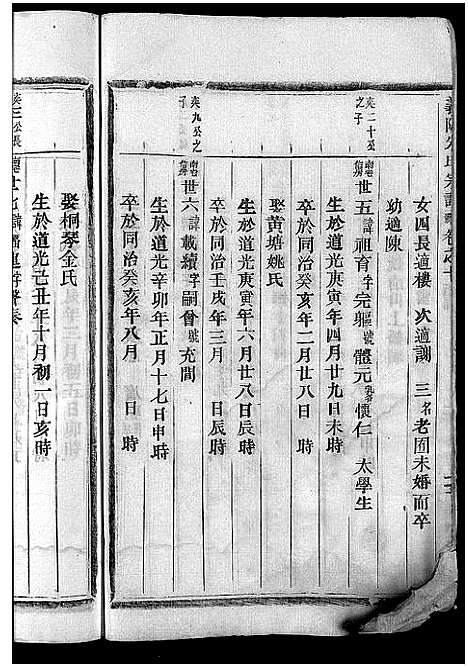 氏宗譜
女四長適樓 次適 三名老囡未婚而卒
幼適陳
奕二十公之子
世五諱祖育字完軀號體元 懷仁 太學生
生於道光庚寅年四月廿九日未時
卒於同治癸亥年二月廿八日 時
娶黃塘姚氏
生於道光庚寅年六月廿八日辰時
卒於同治壬戌年三月 日辰時
奕九公之子
世六諱載續字嗣會號充間
生於道光辛卯年正月十七日申時
卒於同治癸亥年八月 日 時
娶桐琴金氏
生於道光己丑年十月初一日亥時